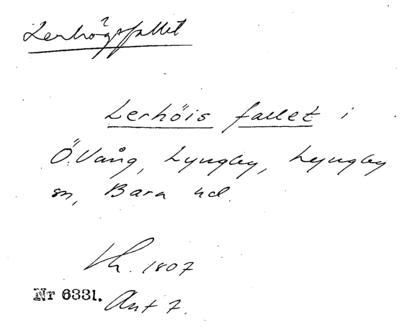 Lerhögsfallet
?
Lerhöis fallet i
Ö. Vång, Lyngby, Lyngby
sn, Bara hd.
1807
Nr 6331. Ant 7.